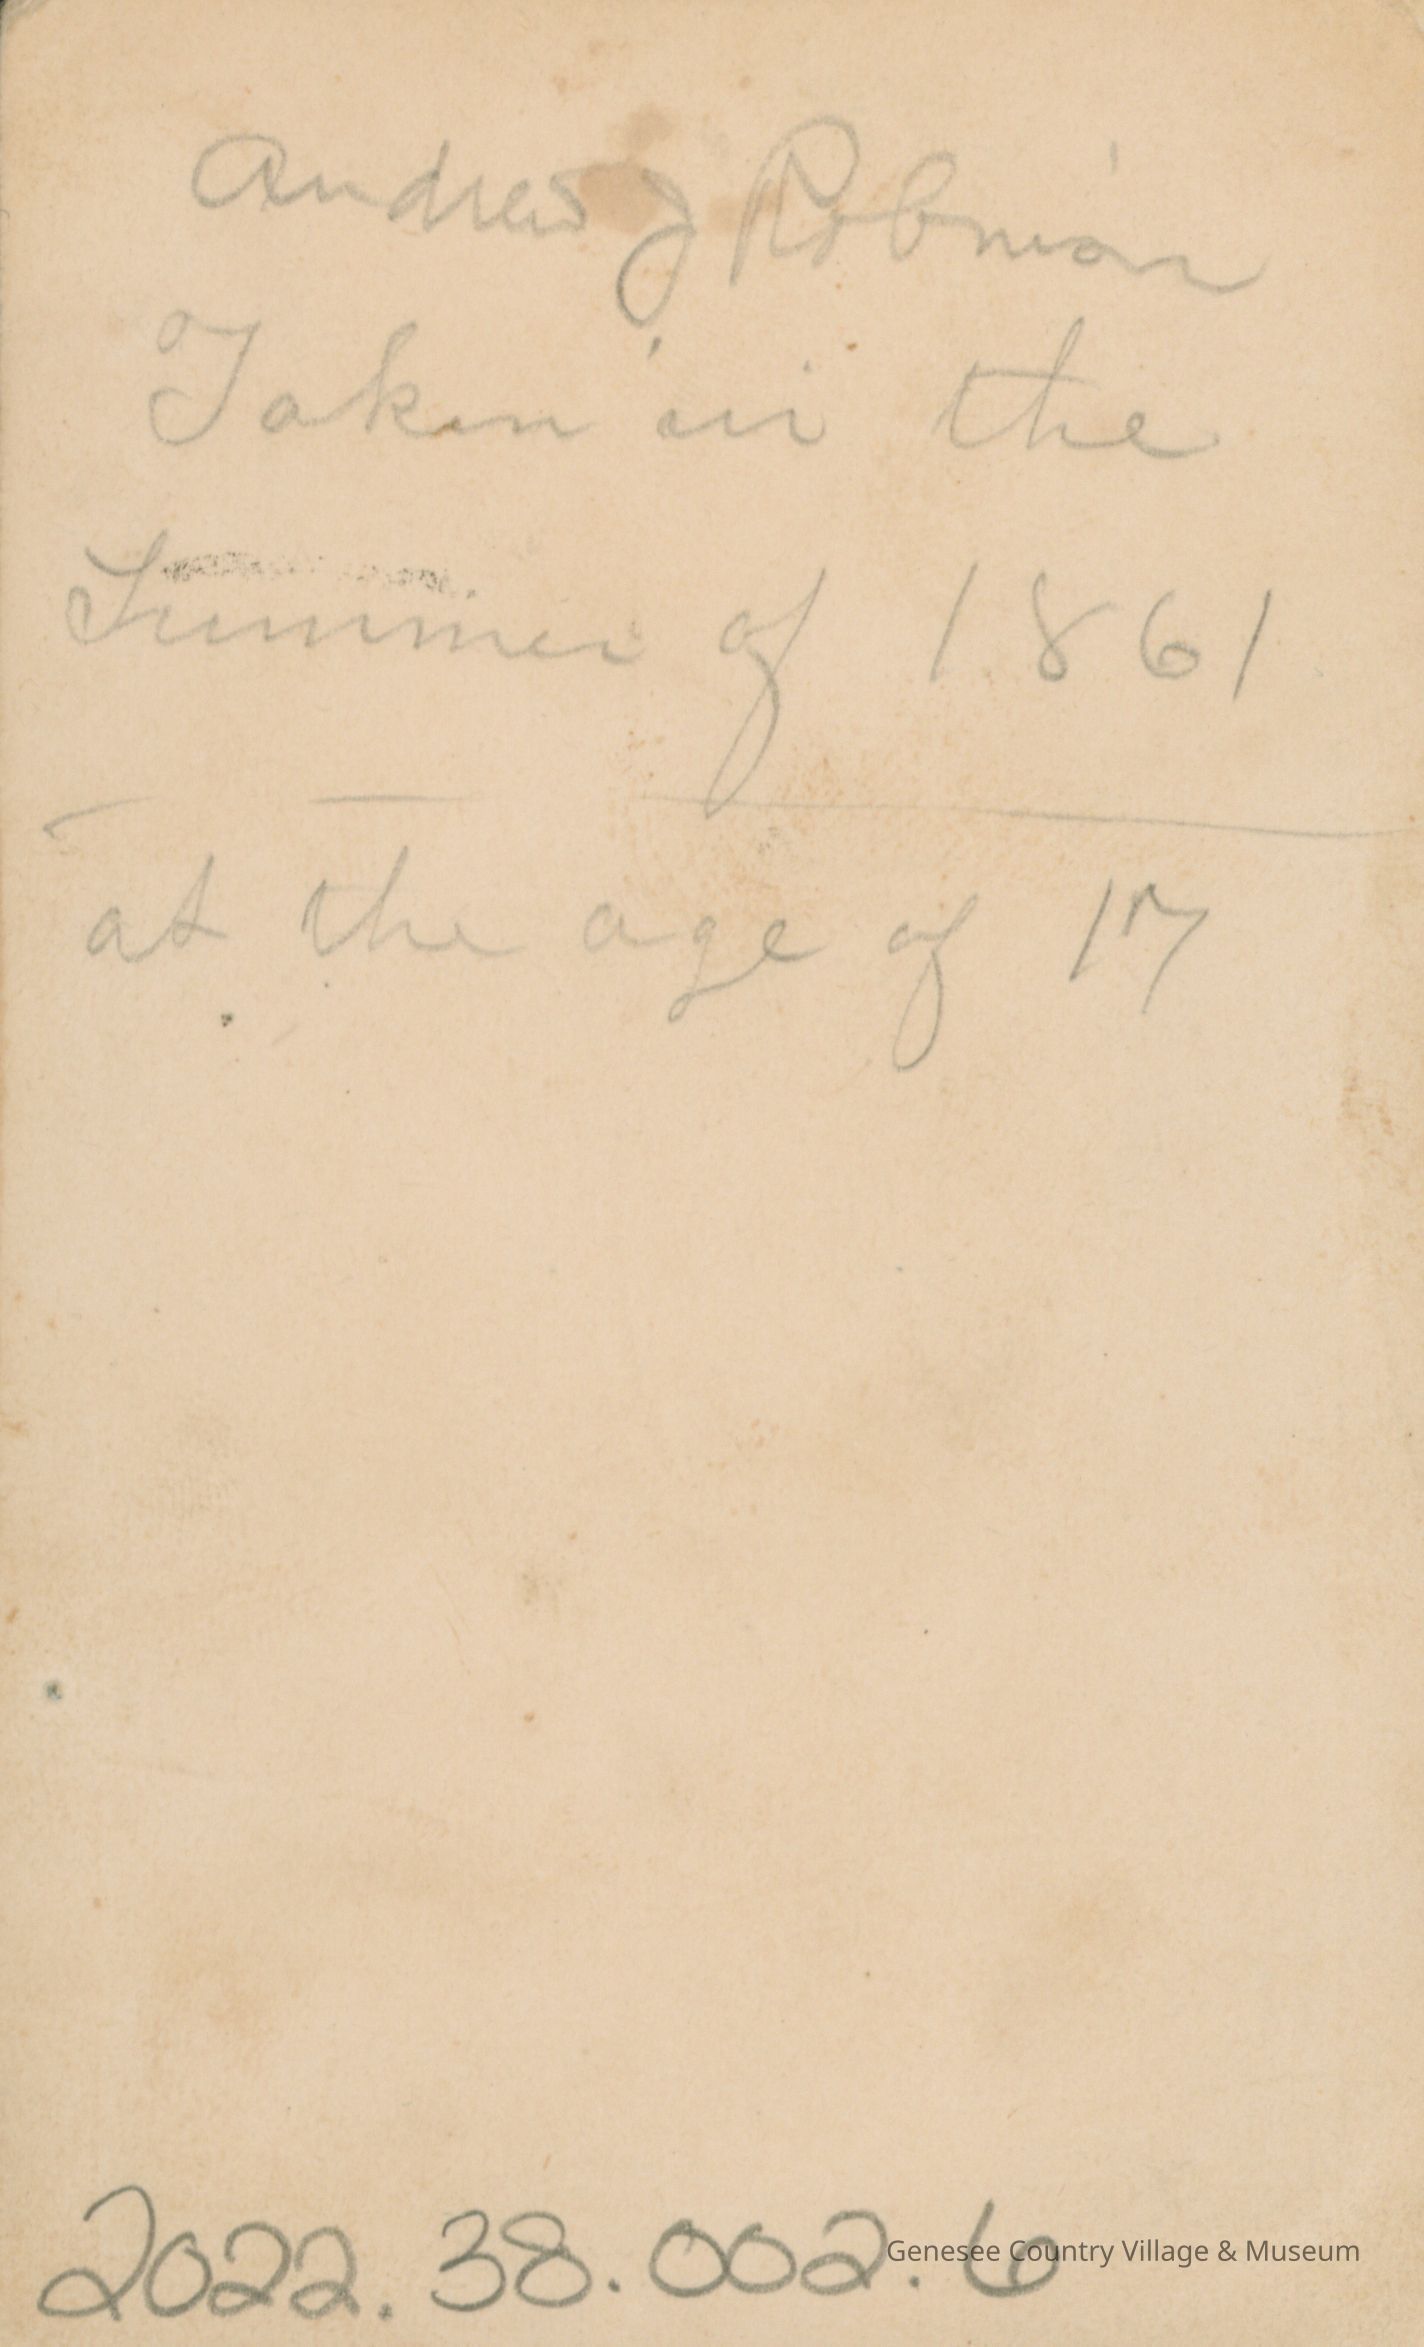 Andrew J Robinson
Taken in the
Summer of 1861
at the age of 17
2022.38.002.6
Genesee Country Village & Museum